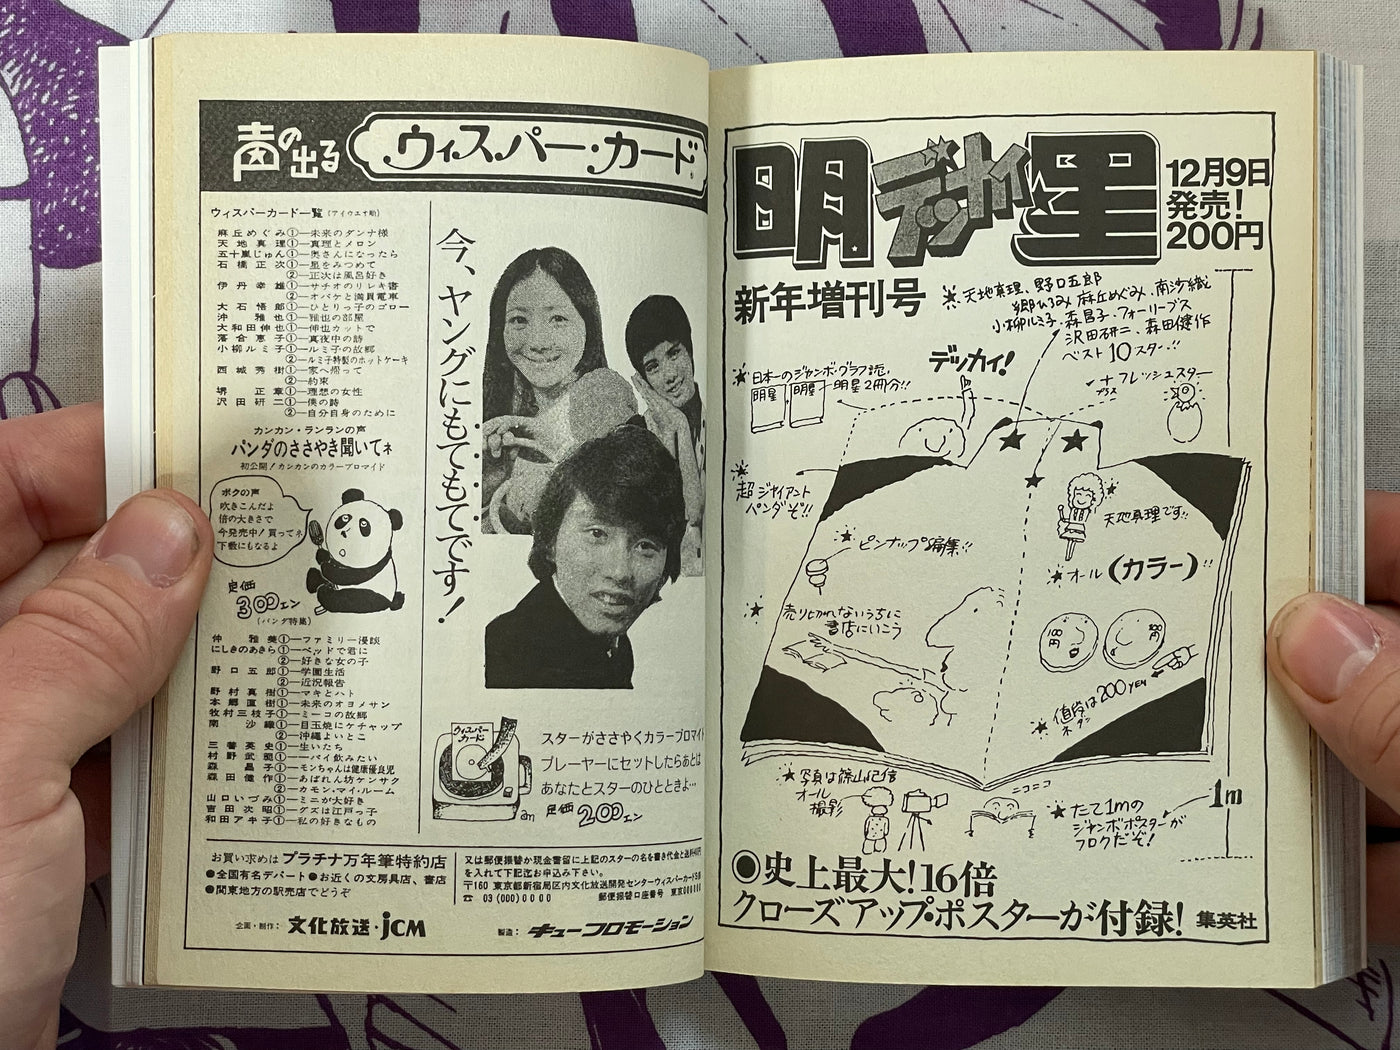 声の出る ウィスパー・カード
ウィスパーカード一覧(アイウエオ順)
麻丘めぐみ①—未来のダンナ様
天地真理①—真理とメロン
五十嵐じゅん①—奥さんになったら
石橋正次①—星をみつめて
②—正次は風呂好き
伊丹幸雄①—サチオのリレキ書
②—オバケと満員電車
大石悟郎①—ひとりっ子のゴロー
沖雅也①—雅也の部屋
大和田伸也①—伸也カットで
落合恵子①—真夜中の詩
小柳ルミ子①—ルミ子の故郷
②—ルミ子特製のホットケーキ
西城秀樹①—家へ帰って
②—約束
堺正章①—理想の女性
沢田研二①—僕の詩
②—自分自身のために
カンカン・ランランの声
パンダのささやき聞いてネ
初公開!カンカンのカラーブロマイド
ボクの声
吹きこんだよ
倍の大きさで
今発売中!買ってネ
下敷にもなるよ
定価
300エン
(パンダ特集)
仲雅美①—ファミリー漫談
にしきのあきら①—ベッドで君に
②—好きな女の子
野口五郎①—学園生活
②—近況報告
野村真樹①—マキとハト
本郷直樹①—未来のオヨメサン
牧村三枝子①—ミーコの故郷
南沙織①—目玉焼にケチャップ
②—沖縄よいとこ
三善英史①—生いたち
村野武範①—一パイ飲みたい
森昌子①—モンちゃんは健康優良児
森田健作①—あばれん坊ケンサク
②—カモン・マイ・ルーム
山口いづみ①—ミニが大好き
吉田次昭①—グズは江戸っ子
和田アキ子①—私の好きなもの
今、ヤングにもてもてです!
ウィスパーカード
スターがささやくカラーブロマイド
プレーヤーにセットしたらあとは
あなたとスターのひとときよ…
定価 200エン
お買い求めは プラチナ万年筆特約店
●全国有名デパート●お近くの文房具店、書店
●関東地方の駅売店でどうぞ
又は郵便振替か現金書留に上記のスターの名を書き代金と送料40円
を入れて下記迄お申込み下さい。
〒160 東京都新宿局区内文化放送開発センターウィスパーカード係
☎ 03(000)0000 郵便振替口座番号 東京000000
企画・制作: 文化放送・JCM
製造: キュープロモーション
明デッカイ星
12月9日
発売!
200円
新年増刊号
天地真理、野口五郎
郷ひろみ 麻丘めぐみ・南沙織
小柳ルミ子・森昌子・フォーリーブス
沢田研二、森田健作
ベスト10スター!!
デッカイ!
日本一のジャンボ・グラフ誌,
明星 明星 明星2冊分!!
+フレッシュスター
プラス
超ジャイアント
パンダぞ!!
天地真理です!!
ピンナップ編集!!
オール(カラー)!!
売り切れないうちに
書店にいこう
100円 100円
値段は200YEN
ネダン
写真は篠山紀信
オール
撮影
ニコニコ
たて1mの
ジャンボポスターが
フロクだぞ!
1m
●史上最大!16倍
クローズアップ・ポスターが付録! 集英社